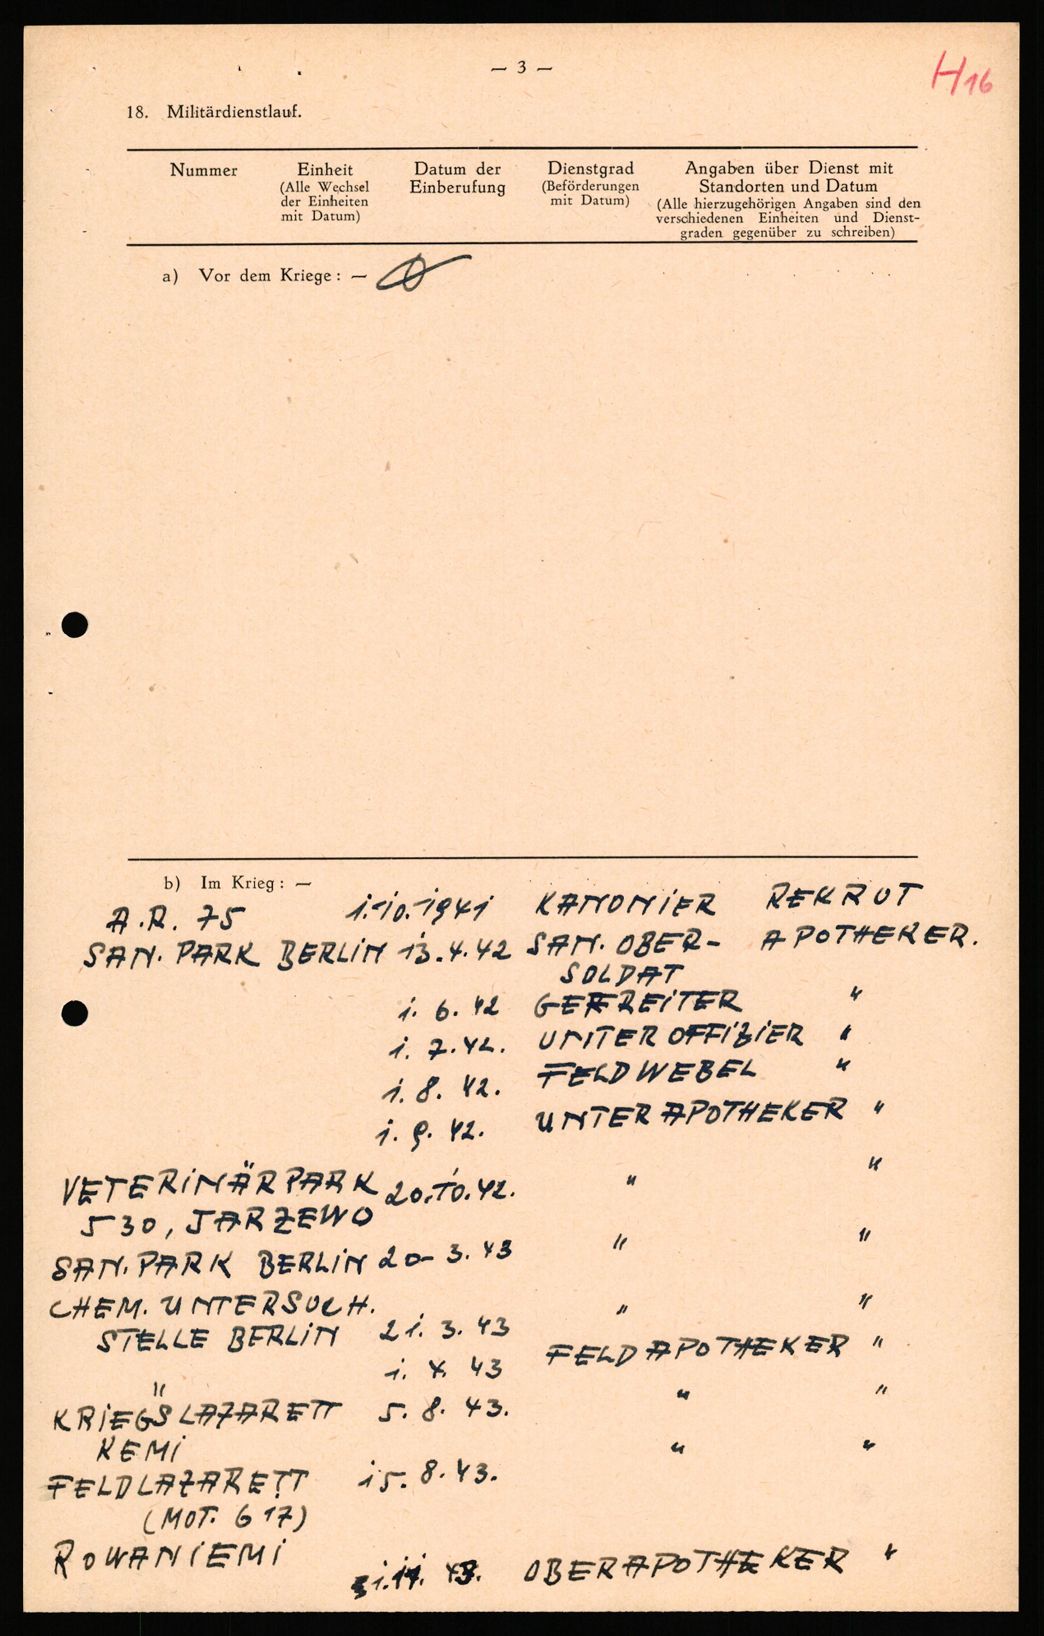 — 3 —
H16
18. Militärdienstlauf.
Nummer
Einheit
(Alle Wechsel
der Einheiten
mit Datum)
Datum der
Einberufung
Dienstgrad
(Beförderungen
mit Datum)
Angaben über Dienst mit
Standorten und Datum
(Alle hierzugehörigen Angaben sind den
verschiedenen Einheiten und Dienst-
graden gegenüber zu schreiben)
a) Vor dem Kriege: —
b) Im Krieg: —
A.R. 75 1.10.1941 KANONIER REKRUT
SAN. PARK BERLIN 13.4.42 SAN. OBER- APOTHEKER.
SOLDAT
1. 6. 42 GEFREITER "
1. 7. 42. UNTEROFFIZIER "
1. 8. 42. FELDWEBEL "
1. 9. 42. UNTERAPOTHEKER "
VETERINÄRPARK 20.10.42. " "
530, JARZEWO
SAN. PARK BERLIN 20. 3. 43 " "
CHEM. UNTERSUCH. " "
STELLE BERLIN 21. 3. 43
" 1. 4. 43 FELDAPOTHEKER "
KRIEGSLAZARETT 5. 8. 43. " "
KEMI
FELDLAZARETT 15. 8. 43. " "
(MOT. G 17)
ROWANIEMI
OBERAPOTHEKER "